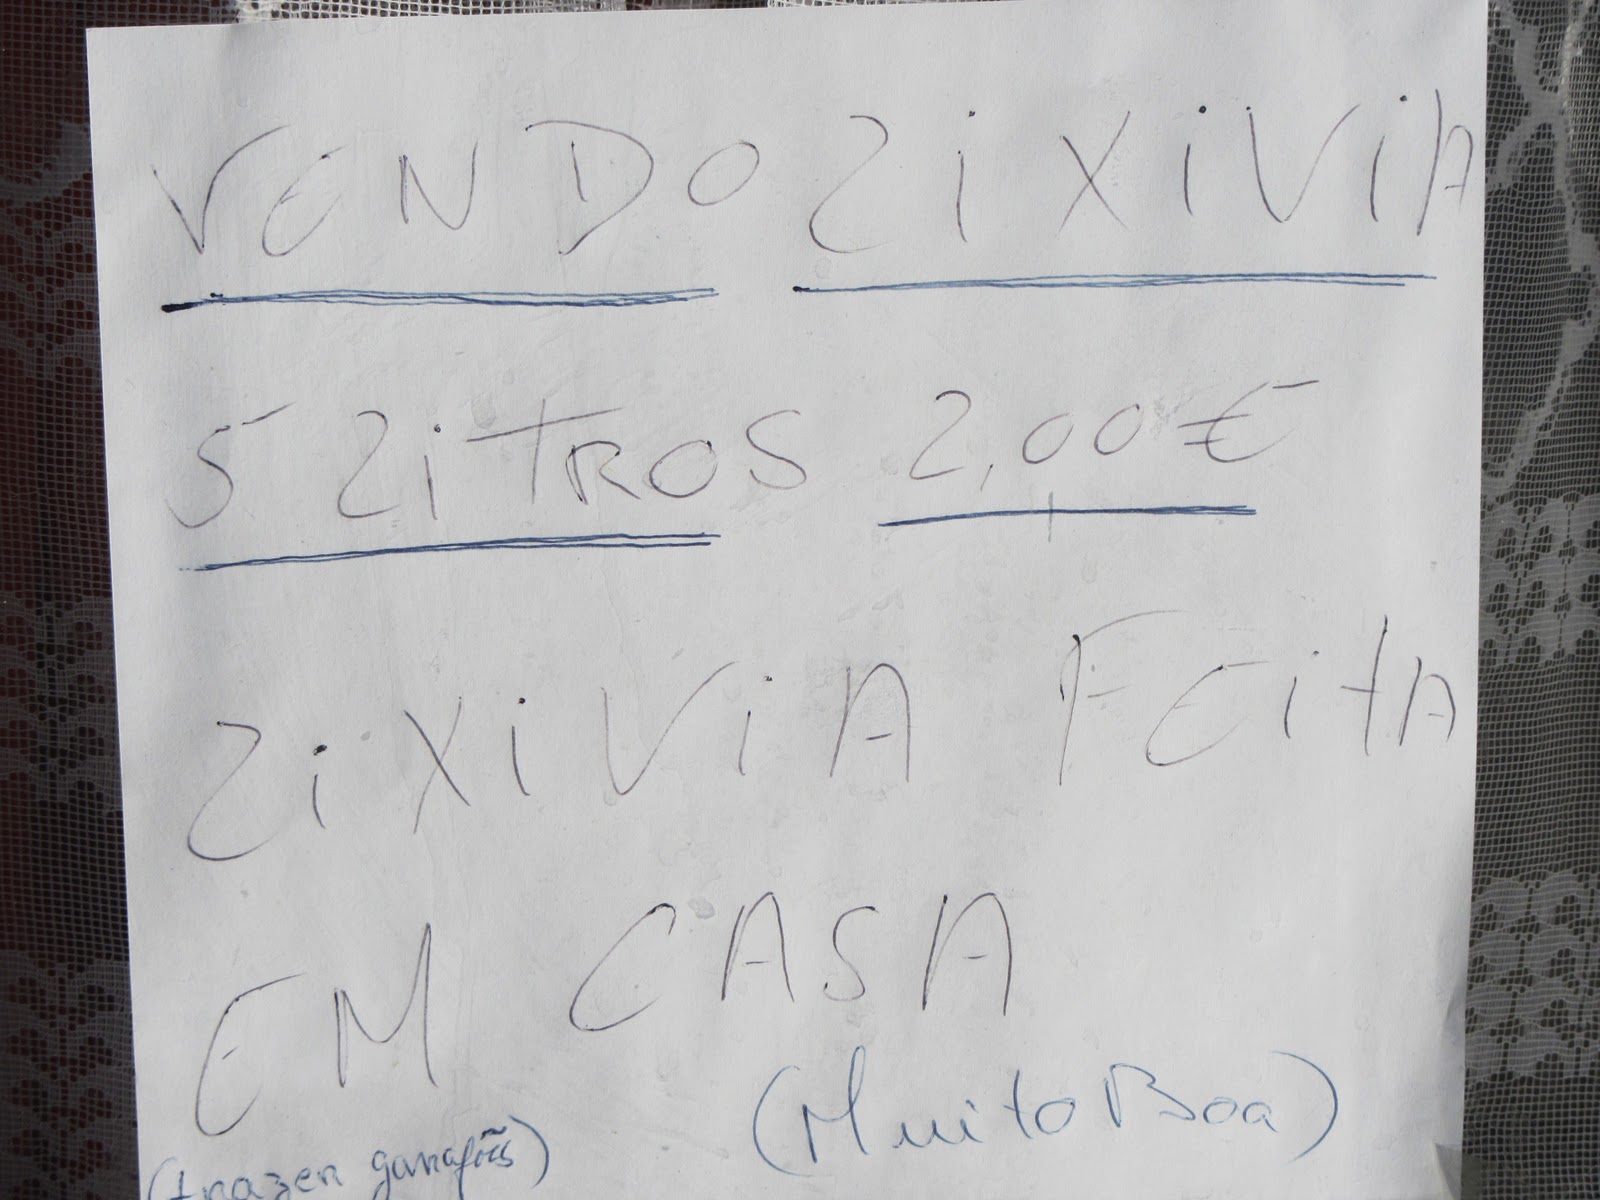 VENDO LiXiViA
5 LiTROS 2,00€
LiXiViA FEitA
EM CASA
(Muito Boa)
(trazer garrafões)